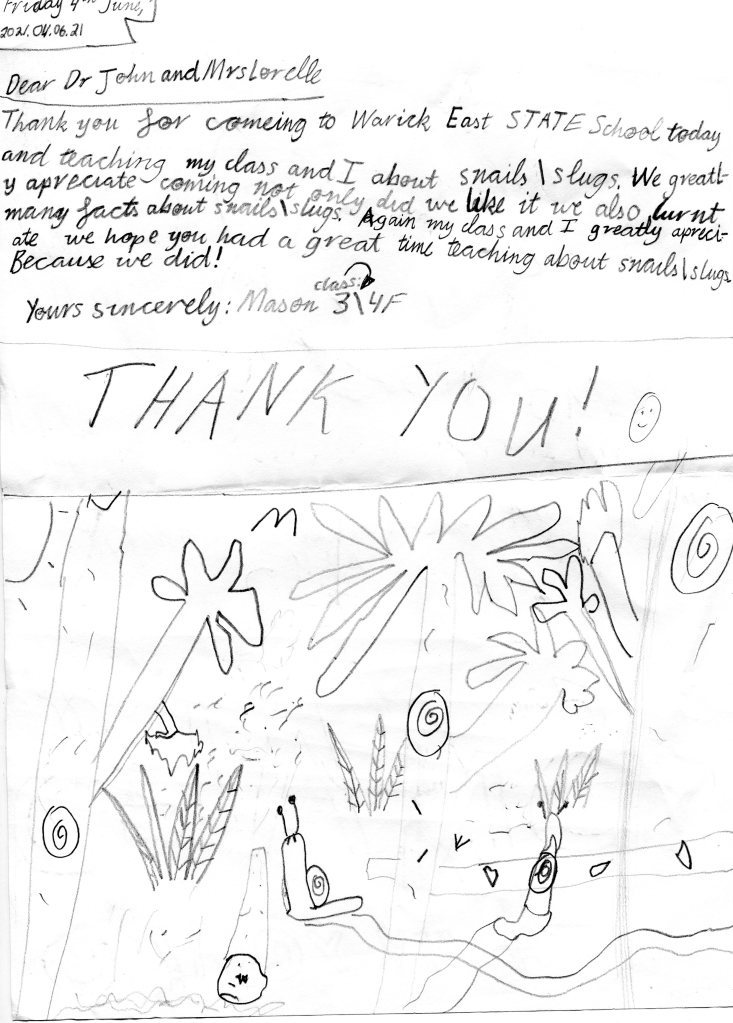 Friday 4th June,
2021.04.06.21
Dear Dr John and Mrs Lorelle
Thank you for comeing to Warick East STATE School today
and teaching my class and I about snails\slugs. We greatl-
y apreciate coming not only did we like it we also lurnt
many facts about snails\slugs. Again my class and I greatly apreci-
ate we hope you had a great time teaching about snails\slugs
Because we did!
class:
Yours sincerely: Mason 3\4F
THANK YOU!